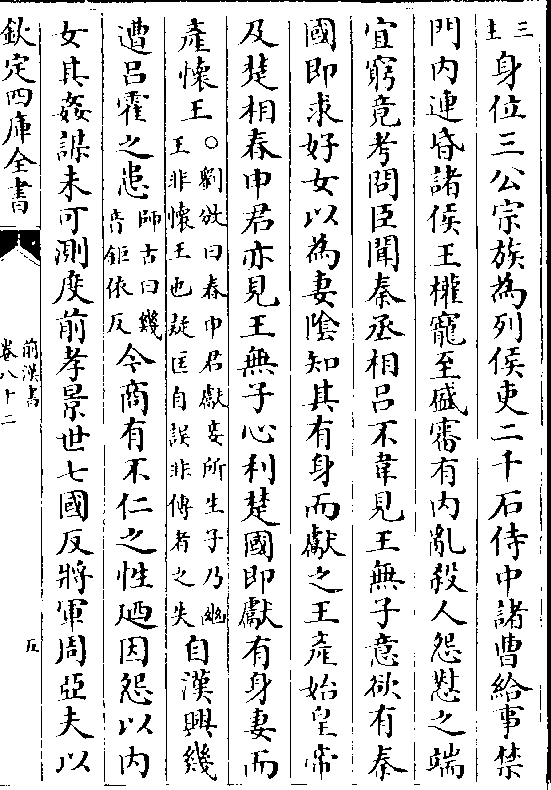 三
土
身位三公宗族為列侯吏二千石侍中諸曹給事禁
門内連昏諸侯王權寵至盛審有内亂殺人怨懟之端
宜窮竟考問臣聞秦丞相吕不韋見王無子意欲有秦
國即求好女以為妻隂知其有身而獻之王產始皇帝
及楚相春申君亦見王無子心利楚國即獻有身妻而
產懷王○劉攽曰春申君獻妾所生子乃幽
王非懷王也疑匡自誤非傳者之失自漢興幾
遭吕霍之患師古曰幾
音鉅依反今商有不仁之性廼因怨以内
女其姦謀未可測度前孝景世七國反將軍周亞夫以
欽定四庫全書
前漢書
卷八十二